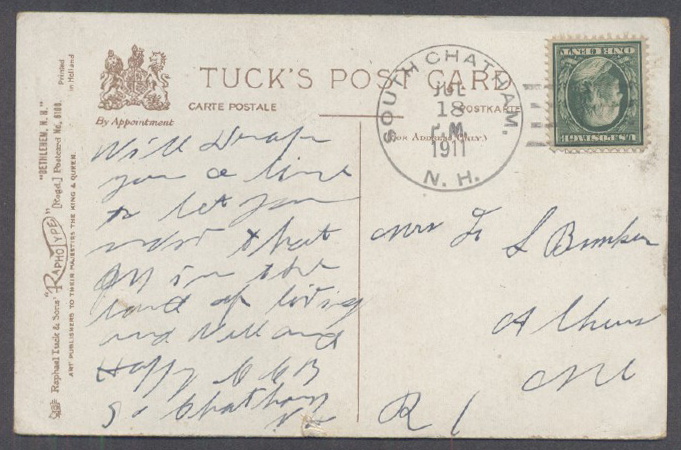 "BETHLEHEM, N. H."
Raphael Tuck & Sons' "RAPHOTYPE" (Regd.) Postcard No. 6108.
ART PUBLISHERS TO THEIR MAJESTIES THE KING & QUEEN.
Printed
in Holland
By Appointment
TUCK'S POST CARD
CARTE POSTALE
POSTKARTE
(FOR ADDRESS ONLY.)
SOUTH CHATHAM,
JUL
18
P.M.
1911
N. H.
U.S. POSTAGE
ONE CENT
Will Drop
you a line
to let you
now that
in the
land of living
and Well and
Happy
So Chatham
Mrs
S Bunker
Athens
Me
R 1